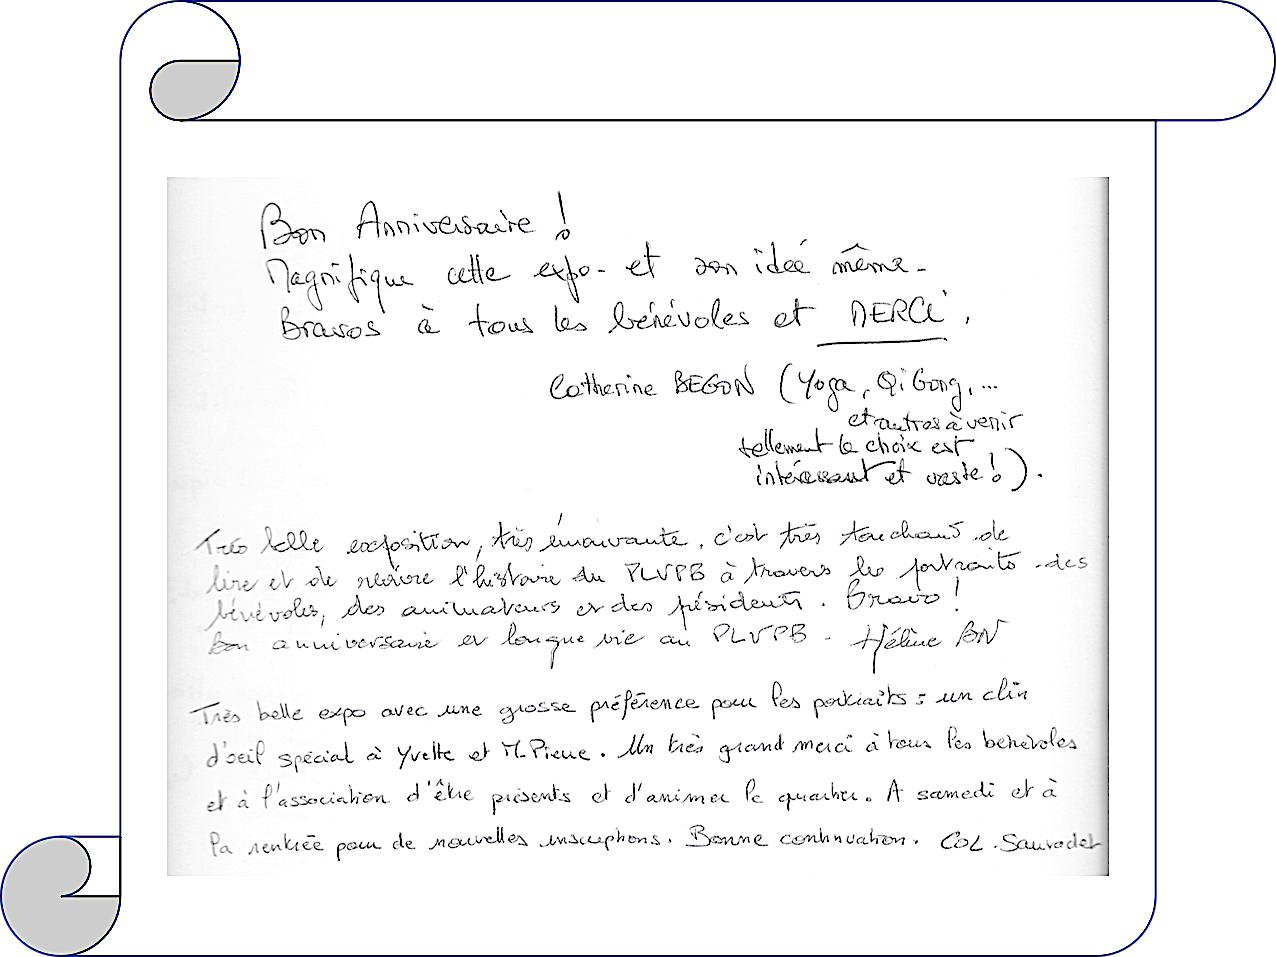 Bon Anniversaire !
Magnifique cette expo - et son idée même -
Bravos à tous les bénévoles et MERCI,
Catherine BEGON (Yoga, Qi Gong, ...
et autres à venir
tellement le choix est
intéressant et vaste !).
Très belle exposition, très émouvante, c'est très touchant de
lire et de revivre l'histoire du PLVPB à travers les portraits des
bénévoles, des animateurs et des présidents. Bravo !
Bon anniversaire et longue vie au PLVPB - Hélène BN
Très belle expo avec une grosse préférence pour les portraits : un clin
d'oeil spécial à Yvette et M-Pierre. Un très grand merci à tous les bénévoles
et à l'association d'être présents et d'animer le quartier. A samedi et à
la rentrée pour de nouvelles inscriptions. Bonne continuation. COL. Sauvadet